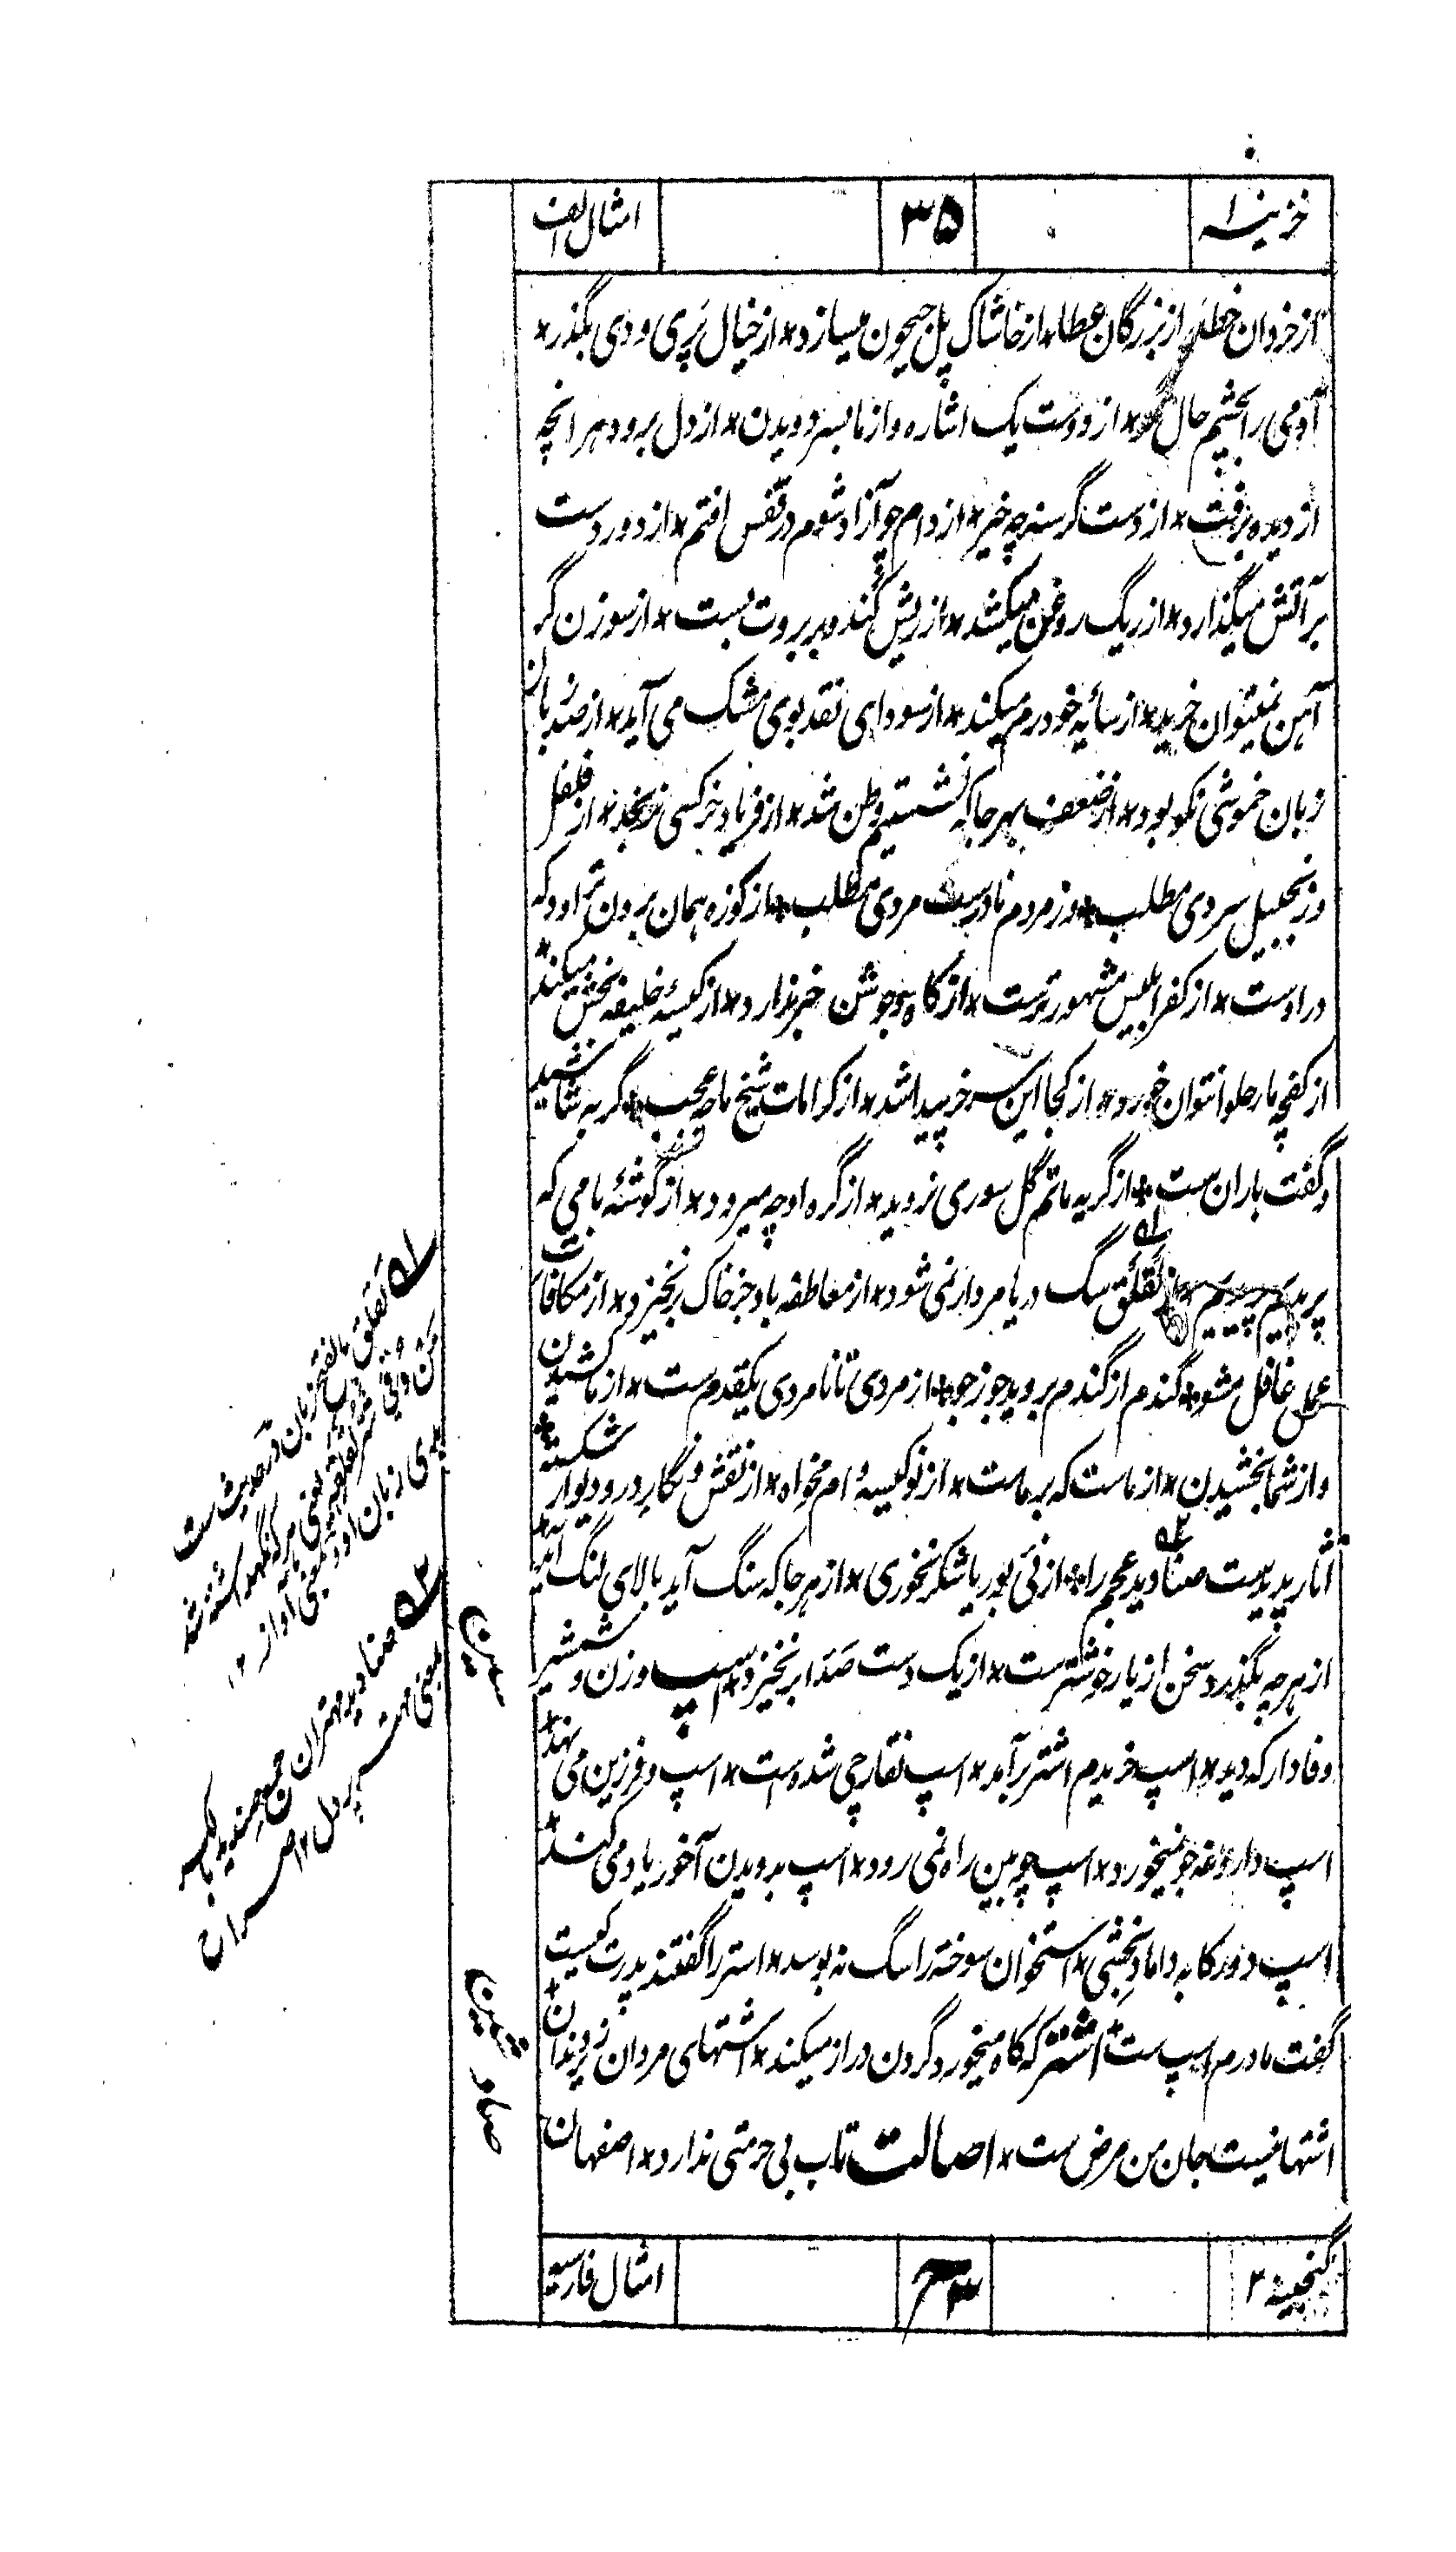 خزینه ۱ ۳۵ امثال الف
از خردان خطا و از بزرگان عطا * از خاشاک پل جیحون میسازد * از خیال پری و دی بگذر *
آدمی را بچشم حال نگر * از دوست یک اشاره و از ما بسر دویدن * از دل برود هر انچه
از دیده برفت * از دست گرسنه چه خیر * از دام چو آزاد شوم در قفس افتم * از دور دست
بر آتش میگذارد * از ریگ روغن میکشد * از ریش کنده بر بروت بست * از سوزن گر
آهن نمیتوان خرید * از سایه خود رم میکند * از سودای نقد بوی مشک می آید * از صد زبان
زبان خموشی نکو بود * از ضعف بهر جا که نشستیم وطن شد * از فریاد خر کسی نرنجد * از فلفل
و زنجبیل سردی مطلب * وز مردم نادرست مردی مطلب * از کوزه همان برون تراود که
در اوست * از کفر ابلیس مشهورترست * از کاه و جوشن خبر ندارد * از کیسه خلیفه بخش میکند *
از کفچه مار حلوا نتوان خورد * از کجا این سر خر پیدا شد * از کرامات شیخ ما چه عجب * گربه شاشید
و گفت باران ست * از گریه ماتم گل سوری نروید * از گره او چه میرود * از گوشه بامی که
پریدیم پریدیم * از لقلق سگ دریا مردار نمی شود * از معاطفه باد جز خاک برنخیزد * از مکافات
عمل غافل مشو * گندم از گندم بروید جو ز جو * از مردی تا نامردی یکقدم ست * از ما کشیدن
و از شما بخشیدن * از ماست که بر ماست * از نوکیسه وام مخواه * از نقش و نگار در و دیوار شکسته *
آثار پدیدست صنادید عجم را * از نئی بوریا شکر نخوری * از هر جا که سنگ آید بالای لنگ آید *
از هر چه بگذرد سخن از یار خوشترست * از یک دست صدا برنخیزد * اسپ و زن و شمشیر
وفادار که دید * اسپ خریدم اشتر برآمد * اسپ نقارچی شده است * اسپ و فرزین می نهد *
اسپ داروغه جو نمیخورد * اسپ چوبین راه نمی رود * اسپ بدویدن آخور یاد می کند *
اسپ دو رکابه داماد بخشی * استخوان سوخته را سگ نه بوسد * استر را گفتند پدرت کیست
گفت مادرم اسپ ست * اشتر که کاه میخورد گردن دراز میکند * اشتهای مردان زیر دندان *
اشتها نیست جان من مرض ست * اصالت تاب بی حرمتی ندارد * اصفهان
گنجینه ۲ امثال فارسیه
سین
شین
صاد
۱ لقلق بالفتح زبان در حدیث ست
یعنی هر که نگهداشته شد
بدی زبان او و بمعنی آواز ۱۲
۲ صنادید مهتران جمع صندید بالکسر
بمعنی مهتر پر دل ۱۲ صراح